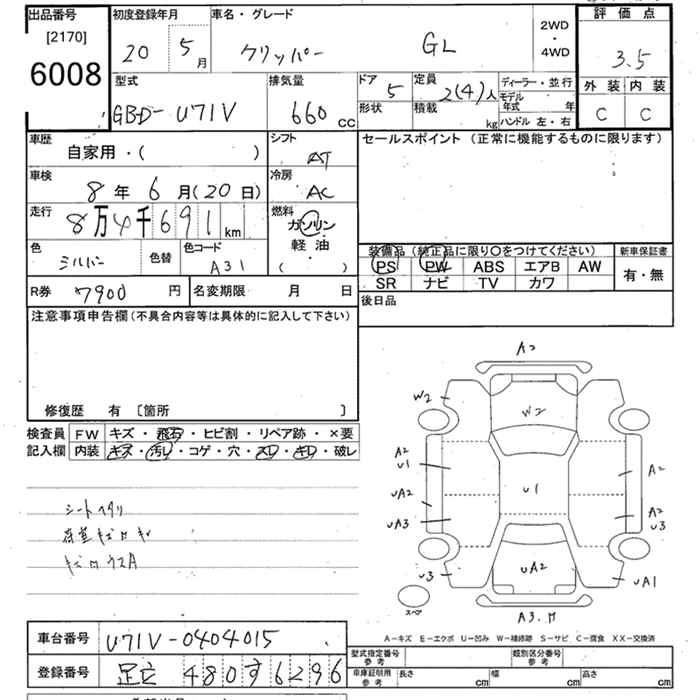 出品番号 初度登録年月 車名・グレード 2WD・4WD 評価点
[2170]
6008 20 5月 クリッパー GL 3.5
型式 排気量 ドア 5 定員 2(4)人 ディーラー・並行 外装 内装
GBD-U71V 660cc 形状 積載 kg モデル年式 年 ハンドル 左・右 C C
車歴 シフト セールスポイント(正常に機能するものに限ります)
自家用・( ) AT
車検 冷房
8年 6月(20日) AC
走行 燃料
8万4千691km ガソリン
軽油
( )
色 色替 色コード 装備品(純正品に限り〇をつけてください) 新車保証書
シルバー A31 PS PW ABS エアB AW 有・無
R券 7900円 名変期限 月 日 SR ナビ TV カワ
後日品
注意事項申告欄(不具合内容等は具体的に記入して下さい)
修復歴 有 [箇所 ]
検査員 FW キズ・飛石・ヒビ割・リペア跡・×要
記入欄 内装 キズ・汚レ・コゲ・穴・スレ・キレ・破レ
A2
W2 W2
A2 U1 A2
U1
UA2 A2 U3
UA3
U3 UA2 UA1
スペア
A3.
シートヘタリ
A-キズ E-エクボ U-凹み W-補修跡 S-サビ C-腐食 XX-交換済
車台番号 U71V-0404015
型式指定番号 参考 類別区分番号 参考
登録番号 足立 480す6296
車庫証明用 参考 長さ cm 幅 cm 高さ cm